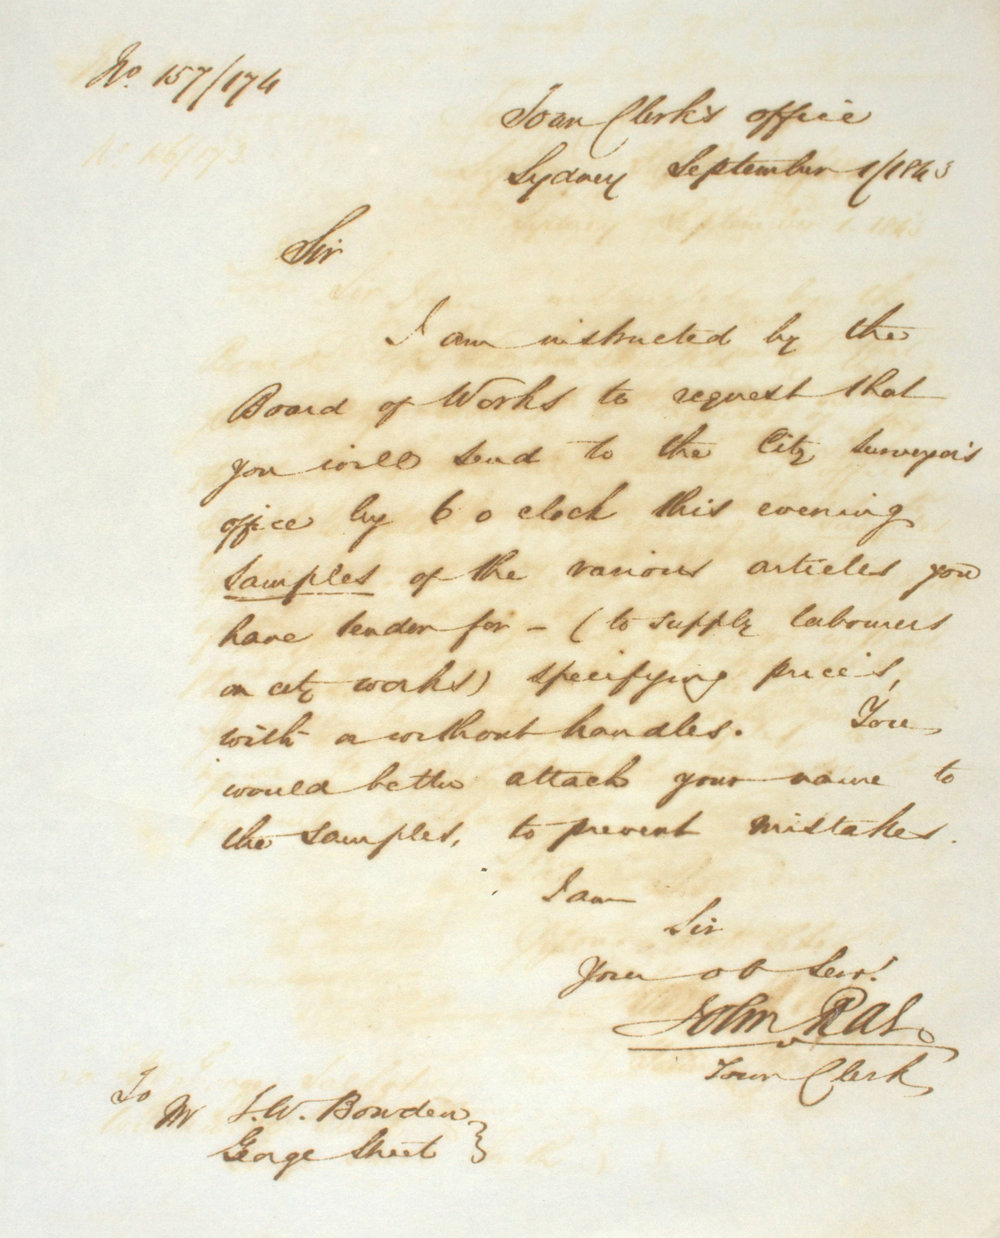 No. 157/174
Town Clerk's office
Sydney September 1/1843
Sir
I am instructed by the
Board of Works to request that
you will send to the City Surveyor's
office by 6 o clock this evening
Samples of the various articles you
have tender for - (to supply labourers
on city works) specifying price's,
with or without handles. You
would better attach your name to
the samples, to prevent mistakes.
I am
Sir
Your ob Serv!
John Rae
Town Clerk
To
Mr J. W. Bowden
George Street